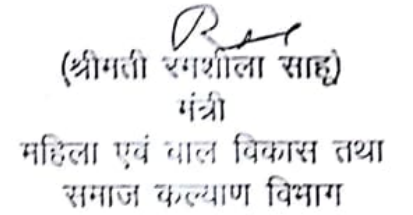 (श्रीमती रमशीला साहू)
मंत्री
महिला एवं बाल विकास तथा
समाज कल्याण विभाग